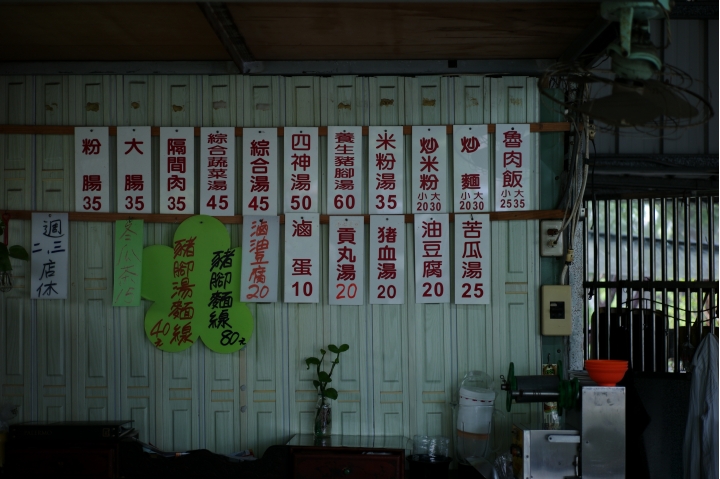 粉腸 35
大腸 35
隔間肉 35
綜合蔬菜湯 45
綜合湯 45
四神湯 50
養生豬腳湯 60
米粉湯 35
炒米粉 小大 2030
炒麵 小大 2030
魯肉飯 小大 2535
週二三店休
豬腳湯麵線 40元
豬腳麵線 80元
滷豆腐 20
滷蛋 10
貢丸湯 20
豬血湯 20
油豆腐 20
苦瓜湯 25